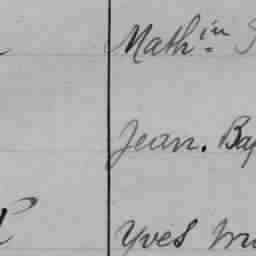 Math.in
Jean. Bap
Yves